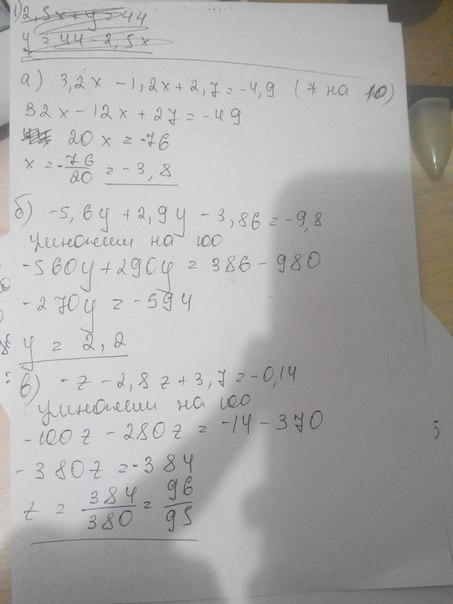 1) 2,5x+y=44
y=44-2,5x
а) 3,2x -1,2x+2,7=-4,9 (* на 10)
32x-12x+27=-49
20x=-76
x=-76/20=-3,8
б) -5,6y+2,9y-3,86=-9,8
умножим на 100
-560y+290y=386-980
-270y=-594
y=2,2
в) -z-2,8z+3,7=-0,14
умножим на 100
-100z-280z=-14-370
-380z=-384
z=384/380=96/95